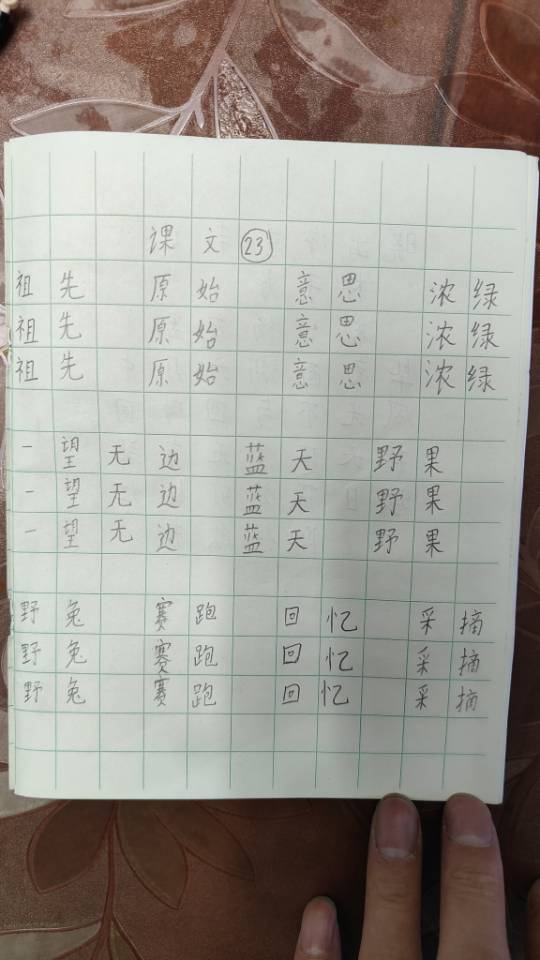 课文 23
祖先 原始 意思 浓绿
祖先 原始 意思 浓绿
祖先 原始 意思 浓绿
一望无边 蓝天 野果
一望无边 蓝天 野果
一望无边 蓝天 野果
野兔 赛跑 回忆 采摘
野兔 赛跑 回忆 采摘
野兔 赛跑 回忆 采摘